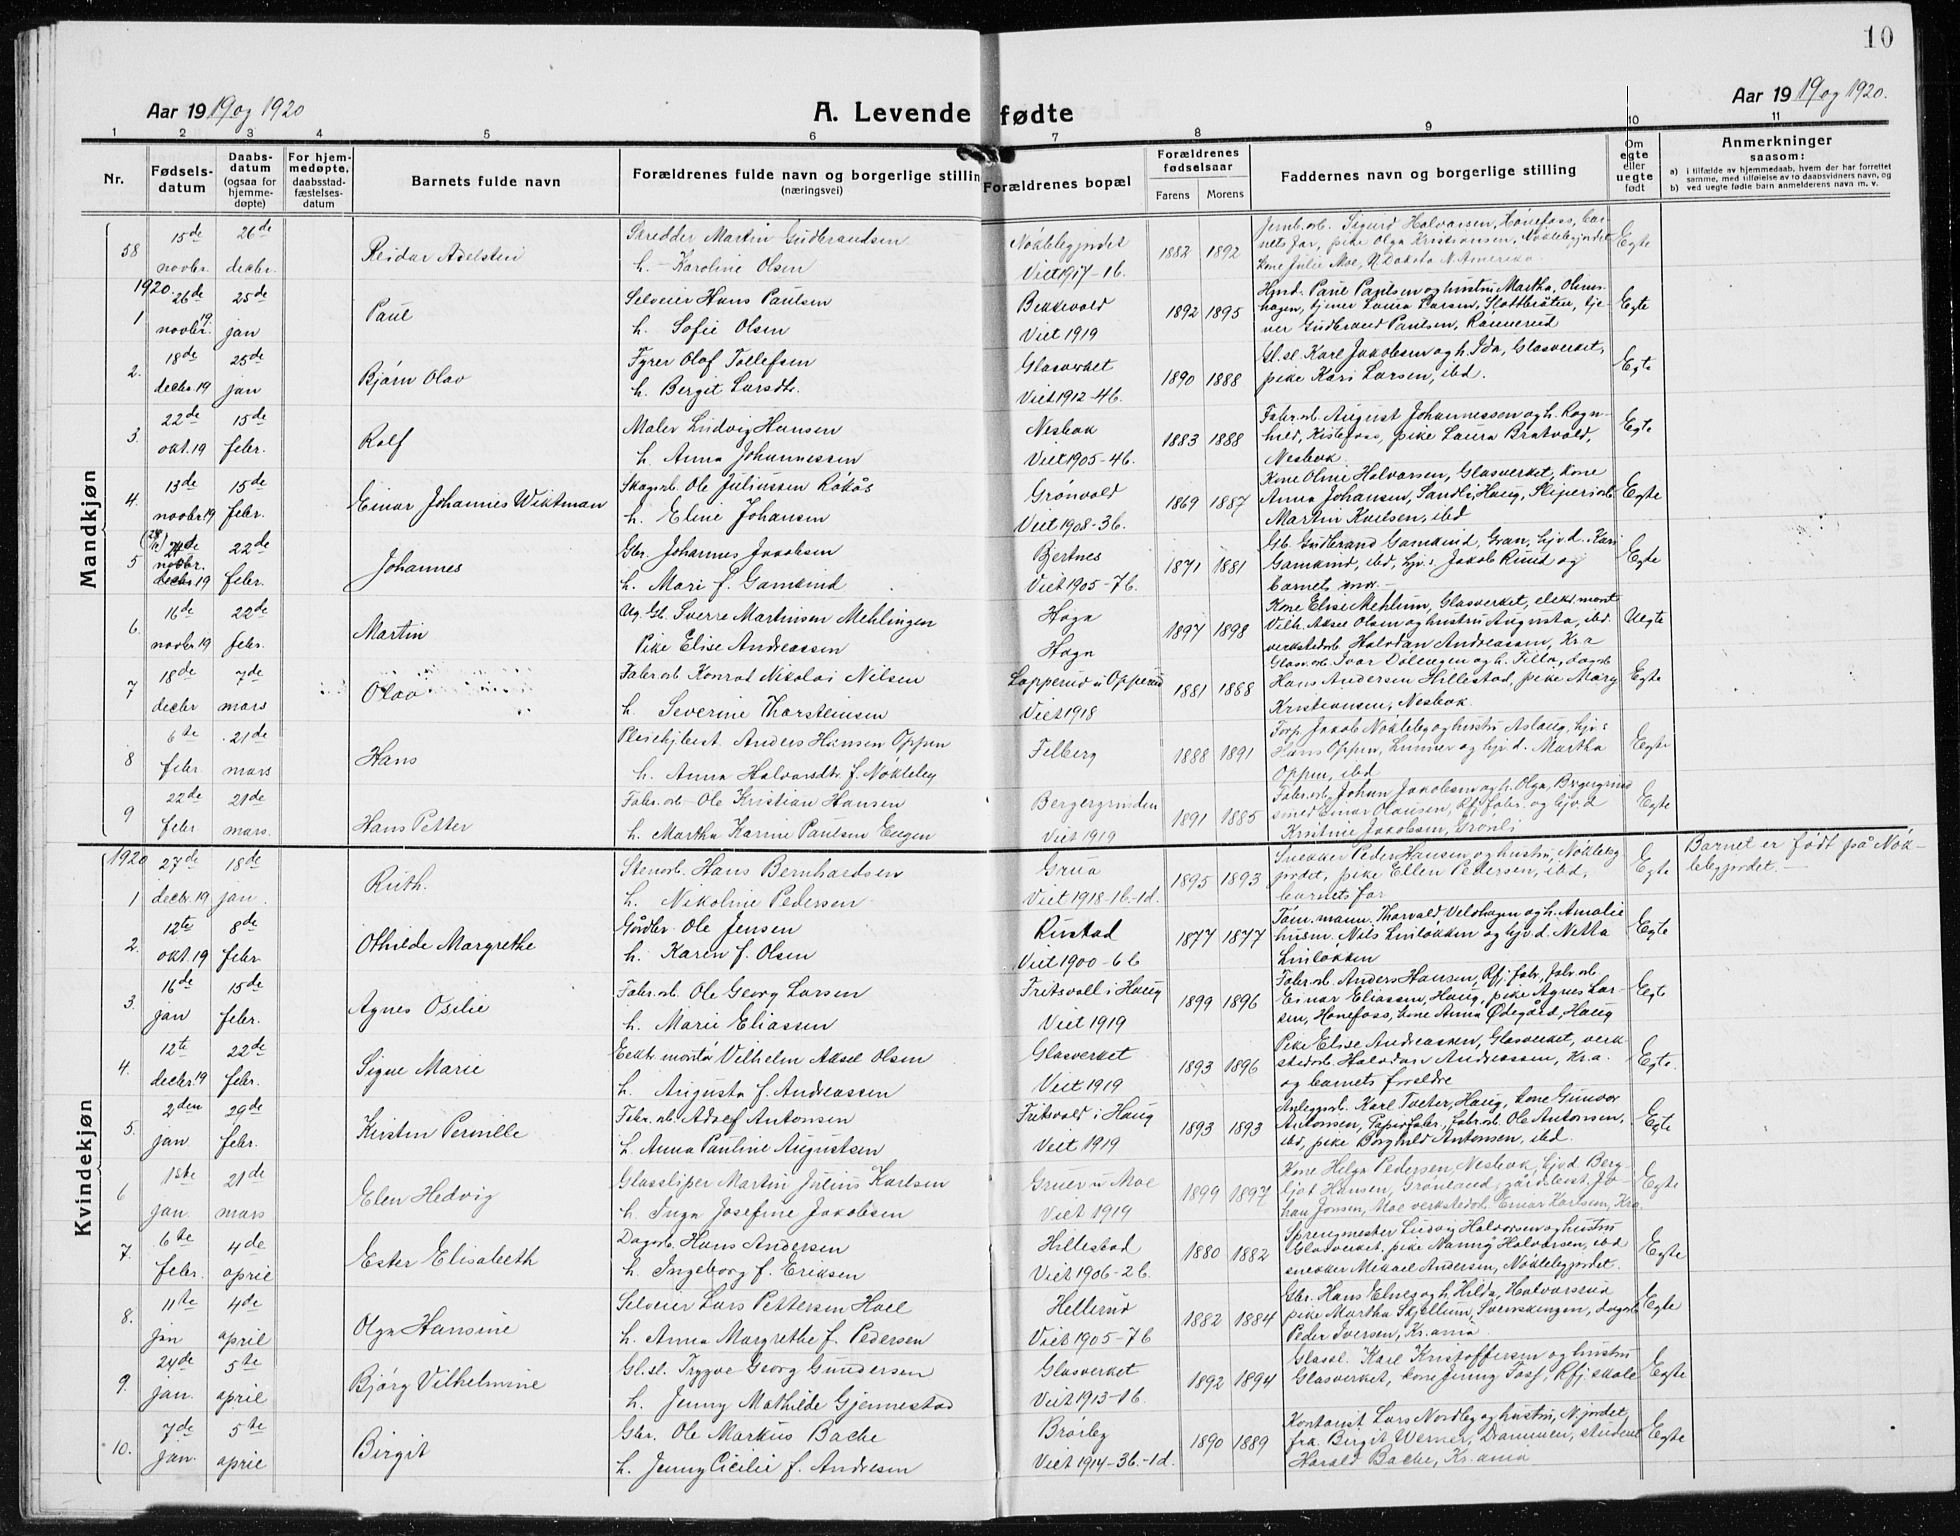 10
Aar 1919 og 1920
A. Levende fødte
Aar 1919 og 1920.
1 2 3 4 5 6 7 8 9 10 11
Nr.
Fødselsdatum
Daabsdatum (ogsaa for hjemmedøpte)
For hjemmedøpte, daabsstadfæstelsesdatum
Barnets fulde navn
Forældrenes fulde navn og borgerlige stilling (næringsvei)
Forældrenes bopæl
Forældrenes fødselsaar
Farens Morens
Faddernes navn og borgerlige stilling
Om egte eller uegte født
Anmerkninger saasom:
a) i tilfælde av hjemmedaab, hvem der har forrettet samme, med tilføielse av to daabsvidners navn, og
b) ved uegte fødte barn anmelderens navn m. v.
Mandkjøn
58 15de novbr. 26de decbr. Reidar Adelsten
Skredder Martin Gudbrandsen
h. Karoline Olsen
Nøklebygjordet
Viet 1917-16.
1882 1892
Jernb.arb. Sigurd Halvorsen, Hønefoss, barnets far, pike Olga Kristiansen, Nøklebygjordet
kone Julie Moe, N. Dakota N. Amerika.
Egte
1920.
1 26de novbr. 19 25de jan Paul
Selveier Hans Paulsen
h. Sofie Olsen
Bekkevold
Viet 1919
1892 1895
Hmd. Paul Paulsen og hustru Martha, Olimshagen, tjener Laura Larsen, Slottbråten, tjener Gudbrand Paulsen, Rønnerud
Egte
2. 18de decbr. 19 25de jan Bjørn Olav
Fyrer Olaf Tollefsen
h. Bergit Larsdtr.
Glasverket
Viet 1912-46.
1890 1888
Gl.sl. Karl Jakobsen og h. Ida, Glasverket,
pike Kari Larsen, ibd.
Egte
3. 22de okt. 19 15de febr. Rolf
Maler Ludvig Hansen
h. Anna Johannessen
Nesbak
Viet 1905-46.
1883 1888
Fabr.arb. August Johannessen og h. Ragnhild, Kistefoss, pike Laura Bratvold,
Nesbak.
Egte
4. 13de novbr 19 15de febr. Einar Johannes Wiktman
Skogsarb. Ole Juliussen Rokås
h. Eline Johansen
Grønvold
Viet 1908-36.
1869 1887
Kone Oline Halvorsen, Glasverket, kone
Anna Johansen, Sandli, Haug, Sliperiarb.
Martin Karlsen, ibd
Egte
5 24de novbr. decbr 19 22de febr. Johannes
Gbr. Johannes Jakobsen
h. Mari f. Gamkind
Bjertnes
Viet 1905-76.
1871 1881
Gb. Gudbrand Gamkind, Gran, hjv.d. Kari
Gamkind, ibd, hjv.s. Jakob Ruud og
barnets mor.
Egte
6. 16de novbr 19 22de febr. Martin
Ug. Gl. Sverre Martinsen Mehlingen
Pike Elise Andreassen
Haga
Haga
1897 1898
Kone Elise Mehlum, Glasverket, elektr. mont
Vilh. Aksel Olsen og hustru Augusta, ibd.
verkstedarb Halvdan Andreassen, Kr.a
Uegte
7 18de decbr 7de mars Olav
Fabr.arb Konrad Nikolai Nilsen
h. Severine Thorsteinsen
Lapperud u Opperud
Viet 1918
1881 1888
Glasv.arb. Ivar Dølengen og h. Tilla, dagarb
Hans Andersen Hillestad, pike Mary
Kristiansen, Nesbak.
Egte
8 6te febr 21de mars Hans
Pleiehjbest. Anders Hansen Oppen
h. Anna Halvorsdtr. f. Nøkleby
Felberg
1888 1891
Forp. Jakob Nøkleby og hustru Aslaug, hjv.s
Hans Oppen, Lunner og hjv.d. Martha
Oppen, ibd
Egte
9 22de febr 21de mars. Hans Petter
Fabr.arb. Ole Kristian Hansen
h. Martha Karine Paulsen Engen
Bergergrinden
Viet 1919
1891 1885
Fabr.arb. Johan Jakobsen og h. Olga, Bergergrind
smed Einar Olausen, Rfj.fabr. og hjv.d
Kristine Jakobsen, Grønli
Egte
Kvindekjøn
1920
1 27de decbr. 19 18de jan. Ruth.
Stenarb. Hans Bernhardsen
h. Nikoline Pedersen
Grua
Viet 1918-16.-1d.
1895 1893
Snekker Peder Hansen og hustru, Nøklebygjordet, pike Ellen Pedersen, ibd,
barnets far
Egte
Barnet er født på Nøklebygjordet.
2. 12te okt 19 8de febr Othilde Margrethe
Gårdbr. Ole Jensen
h. Karen f. Olsen
Rustad
Viet 1900-66
1877 1877
Tøm.mann. Thorvald Velshagen og h. Amalie
husm. Nils Linløkken og hjv.d. Netta
Linløkken
Egte
3. 16de jan 15de febr. Agnes Osilie
Fabr.arb. Ole Georg Larsen
h. Marie Eliassen
Fritsvoll i Haug
Viet 1919
1899 1896
Fabr.arb. Anders Hansen, Rfj. fabr, fabr.arb.
Einar Eliassen, Haug, pike Agnes Larsen, Hønefoss, kone Anna Ødegård, Haug
Egte
4. 12te decbr. 19 22de febr. Signe Marie
Eektr. montør Vilhelm Aksel Olsen
h. Augusta f. Andreassen
Glasverket
Viet 1919
1893 1896
Pike Elise Andreassen, Glasverket, verkstedarb. Halvdan Andreassen, Kr.a.
og barnets foreldre
Egte.
5. 2den jan. 29de febr. Kirsten Pernille
Fabr.arb. Adolf Antonsen
h. Anna Pauline Augustsen
Fritsvold i Haug
Viet 1919
1893 1893
Anleggsarb. Karl Tveter, Haug, kone Gunvor
Antonsen, Papirfabr., fabr.arb. Ole Antonsen,
ibd, pike Borghild Antonsen, ibd.
Egte
6 1ste jan. 21de mars Elen Hedvig
Glassliper Martin Julius Karlsen
h. Inga Josefine Jakobsen
Gruer u Moe
Viet 1919
1899 1897
Kone Helga Pedersen, Nesbak, hjv.d. Bergljot Hansen, Grønland, gårdsbest. Johan Jonsen, Moe verkstedarb. Einar Karlsen, Kra.
Egte
7. 6te febr. 4de april Ester Elisabeth
Dagarb. Hans Andersen
h. Ingeborg f. Eriksen
Hillestad
Viet 1906-26.
1880 1882
Sprengmester Ludvig Halvorsen og hustru
Glasverket, pike Nanny Halvorsen, ibd
snekker Mikael Andersen, Nøklebygjordet.
Egte
8. 11te jan 4de april Olga Hansine
Selveier Lars Pettersen Hoel
h. Anna Margrethe f. Pedersen
Hellerud
Viet 1905-76
1882 1884
Gbr. Hans Elnes og h. Hilda, Halvorsrud
pike Martha Skjellum, Svenskengen, dagarb.
Peder Iversen, Kr.ania
Egte
9. 24de jan. 5te april Bjørg Vilhelmine
Gl.sl. Trygve Georg Gundersen
h. Jenny Mathilde Gjennestad
Glasverket
Viet 1913-16.
1892 1894
Glassl. Karl Kristoffersen og hustru
Glasverket, kone Jenny Foss, Rfj. skole
Egte
10. 7de jan. 5te april Birgit
Gbr. Ole Markus Bache
h. Jenny Cicilie f. Andresen
Brørby
Viet 1914-36.-1d.
1890 1889
Kontorist Lars Nordby og hustru, N. jordet,
frk. Birgit Werner, Drammen, student
Harald Bache, Kr.ania
Egte